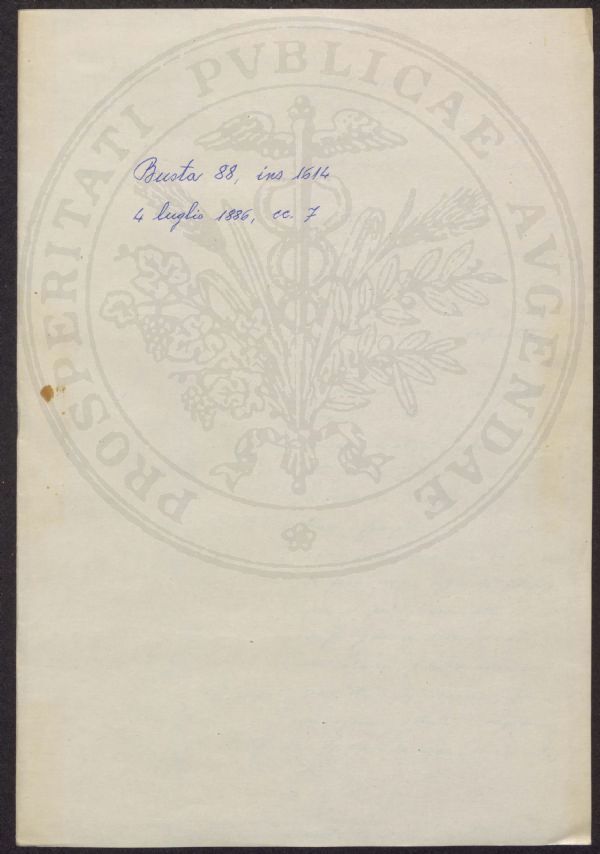 Busta 88, ins 1614
4 luglio 1886, cc. 7
PROSPERITATI PVBLICAE AVGENDAE